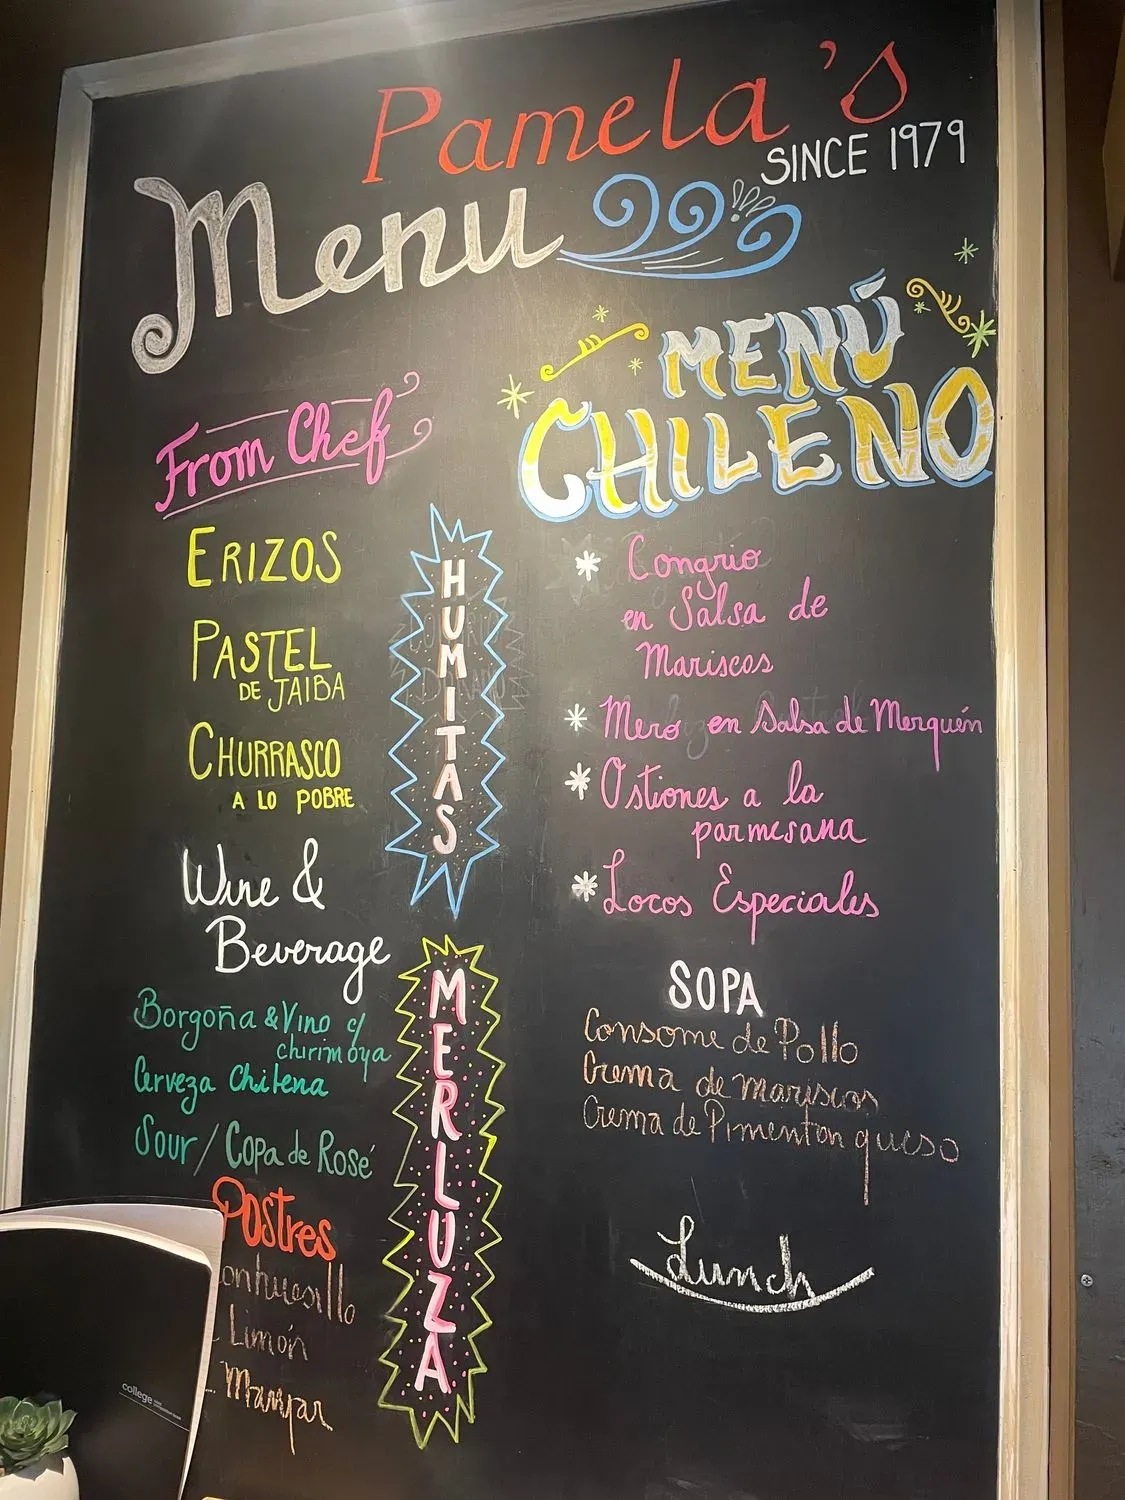 Pamela's
SINCE 1979
Menu
MENÚ
CHILENO
From Chef
ERIZOS
PASTEL
DE JAIBA
CHURRASCO
A LO POBRE
HUMITAS
Wine &
Beverage
Borgoña & Vino c/
chirimoya
Cerveza Chilena
Sour / Copa de Rosé
Postres
Limón
Manjar
MERLUZA
* Congrio
en Salsa de
Mariscos
* Mero en Salsa de Merquén
* Ostiones a la
parmesana
* Locos Especiales
SOPA
Consome de Pollo
Crema de mariscos
Crema de Pimenton queso
Lunch
college